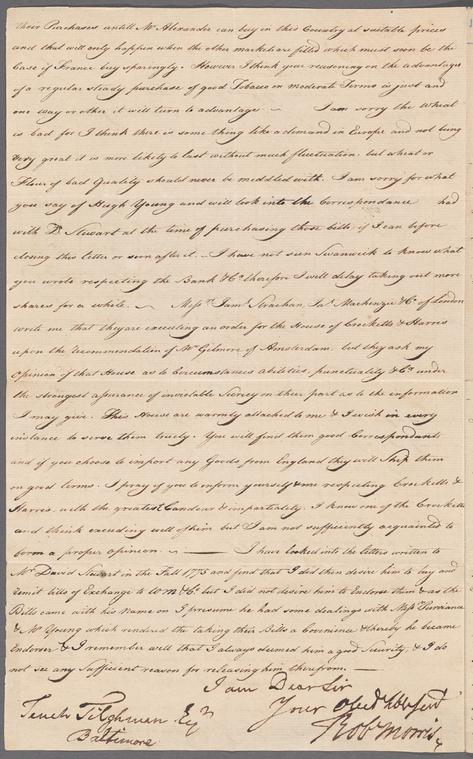 their Purchases untill Mr Alexander can buy in this Country at suitable prices
and that will only happen when the other markets are filled which must soon be the
Case if France buy sparingly. However I think your reasoning on the advantages
of a regular steady purchase of good Tobacco on moderate Terms is just and
one way or other it will turn to advantage — I am sorry the Wheat
is bad for I think there is some thing like a demand in Europe and not being
very great it is more likely to last without much fluctuation, but wheat or
Flour of bad Quality should never be meddled with. I am sorry for what
you say of Hugh Young and will look into the Correspondence had
with D. Stewart at the time of purchasing those bills, if I can before
closing this letter or soon after it. — I have not seen Swanwick to know what
you wrote respecting the Bank &Ca therefore I will delay taking out more
shares for a while. — Messrs Jams Strachan, Jas Mackenzie & Co of London
wrote me that they are executing an order for the House of Crocketts & Harris
upon the recommendation of Mr Gilmore of Amsterdam, but they ask my
Opinion of that House as to Circumstances abilities, punctuality &Ca under
the strongest assurance of inviolable Secrecy on their part as to the information
I may give. This House are warmly attached to me & I wish in every
instance to serve them truely. You will find them good Correspondents
and if you choose to import any Goods from England they will Ship them
on good terms. I pray of you to inform yourself & me respecting Crocketts &
Harris, with the greatest Candour & impartiality. I know one of the Crocketts
and think exceeding well of him but I am not sufficiently acquainted to
form a proper opinion. — I have looked into the letters written to
Mr David Stewart in the Fall 1775 and find that I did then desire him to buy and
remit bills of Exchange to W M & Co. but I did not desire him to Endorse them & as the
Bills came with his Name on I presume he had some dealings with Messrs Purviance
& Mr Young which rendered the taking their Bills a Convenience & thereby he became
Endorser & I remember well that I always deemed him a good Security, & I do
not see any Sufficient reason for releasing him therefrom. —
I am Dear Sir
Your Obedt hble servt
Robt Morris
Tench Tilghman Esqr
Baltimore